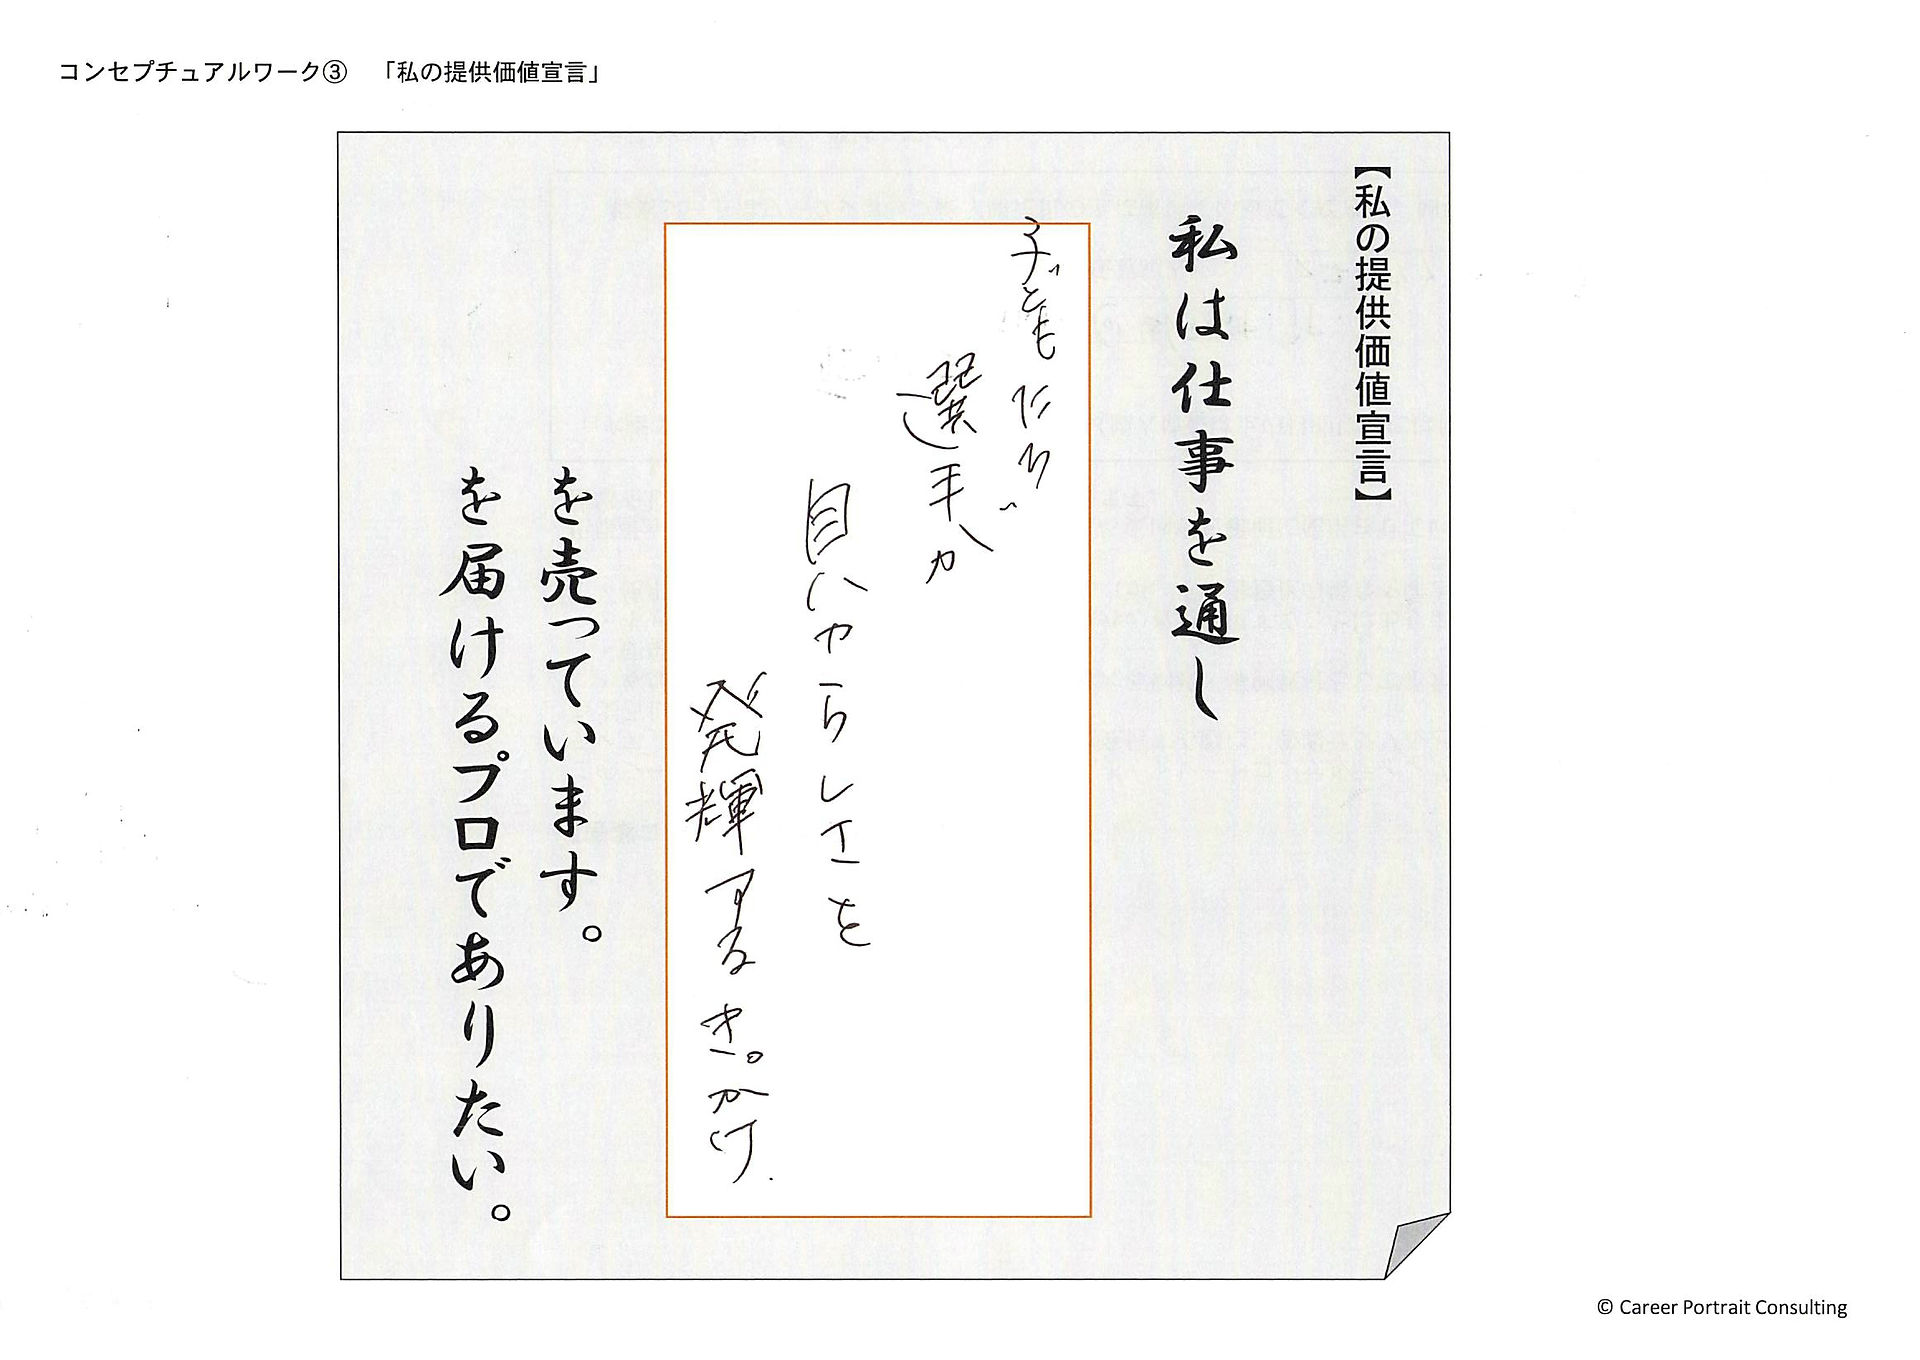 コンセプチュアルワーク③　「私の提供価値宣言」
【私の提供価値宣言】
私は仕事を通し
子どもたち
選手が
自分らしさを
発揮するきっかけ.
を売っています。
を届けるプロでありたい。
© Career Portrait Consulting